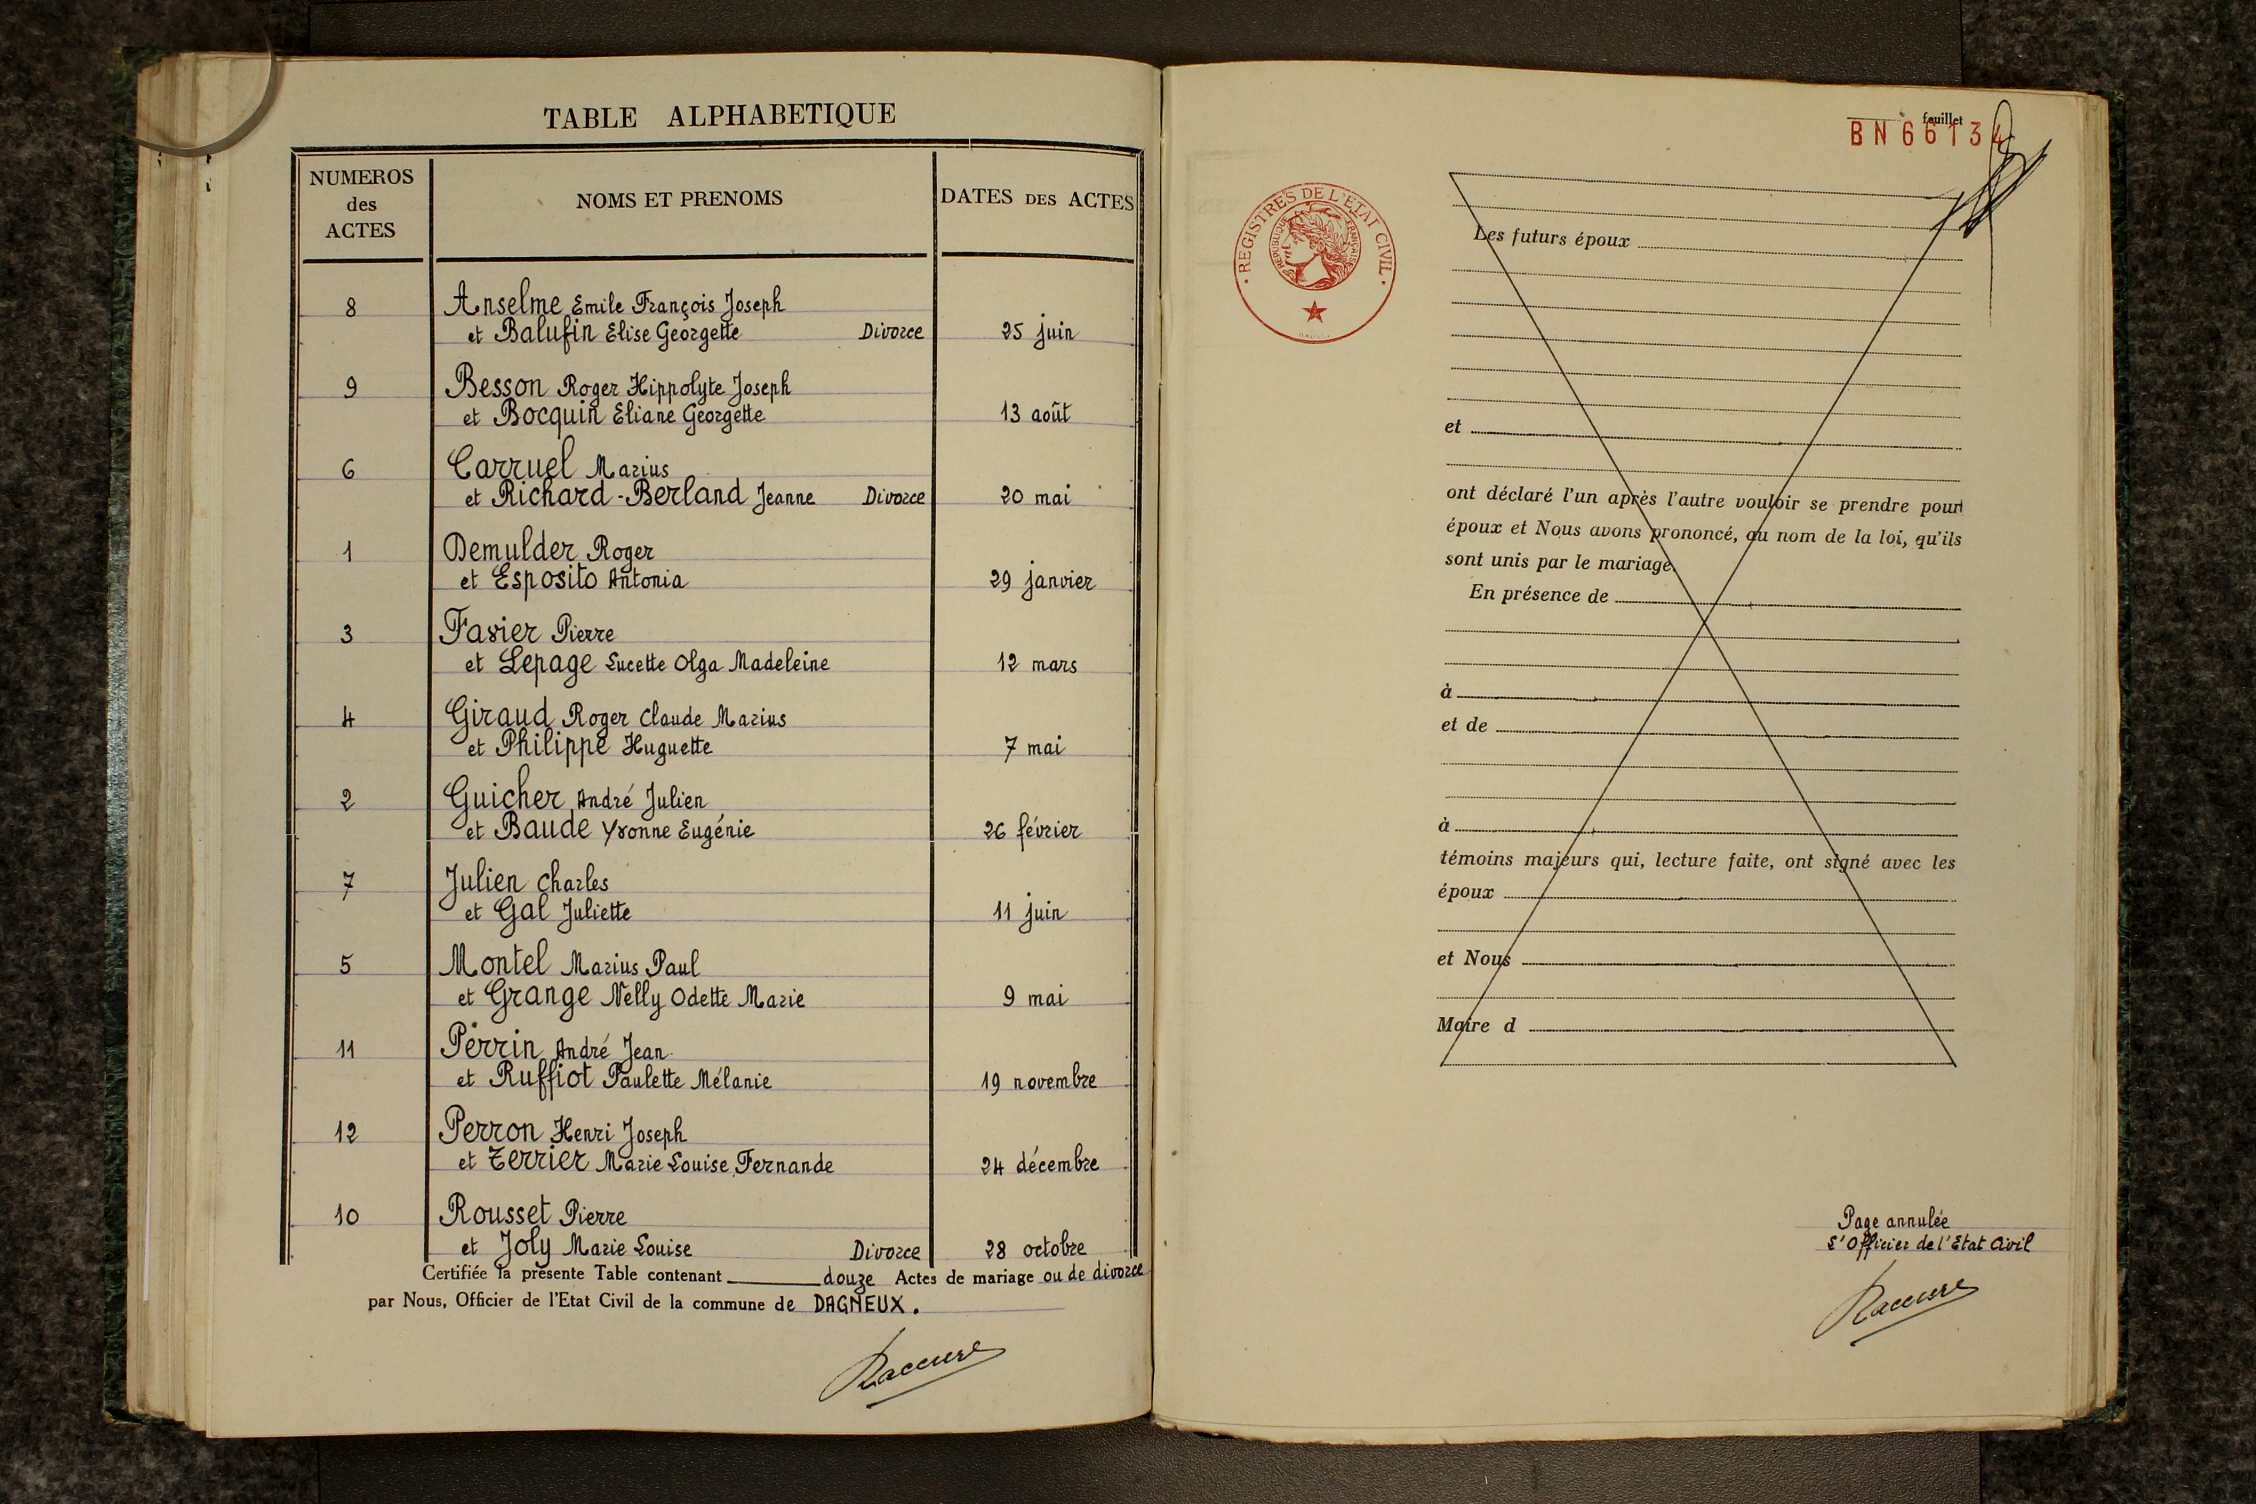 TABLE ALPHABETIQUE
NUMEROS
des
ACTES
NOMS ET PRENOMS
DATES DES ACTES
8 Anselme Emile François Joseph
et Balufin Elise Georgette Divorce 25 juin
9 Besson Roger Hippolyte Joseph
et Bocquin Eliane Georgette 13 août
6 Carruel Marius
et Richard-Berland Jeanne Divorce 20 mai
1 Demulder Roger
et Esposito Antonia 29 janvier
3 Favier Pierre
et Lepage Lucette Olga Madeleine 12 mars
4 Giraud Roger Claude Marius
et Philippe Huguette 7 mai
2 Guicher André Julien
et Baude Yvonne Eugénie 26 février
7 Julien Charles
et Gal Juliette 11 juin
5 Montel Marius Paul
et Grange Nelly Odette Marie 9 mai
11 Perrin André Jean
et Ruffiot Paulette Mélanie 19 novembre
12 Perron Henri Joseph
et Terrier Marie Louise Fernande 24 décembre
10 Rousset Pierre
et Joly Marie Louise Divorce 28 octobre
Certifiée la présente Table contenant douze Actes de mariage ou de divorce
par Nous, Officier de l'Etat Civil de la commune de DAGNEUX.
feuillet
BN66134
REGISTRES DE L'ETAT CIVIL
REPUBLIQUE FRANÇAISE
Les futurs époux
et
ont déclaré l'un après l'autre vouloir se prendre pour
époux et Nous avons prononcé, au nom de la loi, qu'ils
sont unis par le mariage.
En présence de
à
et de
à
témoins majeurs qui, lecture faite, ont signé avec les
époux
et Nous
Maire d
Page annulée
L'Officier de l'Etat Civil